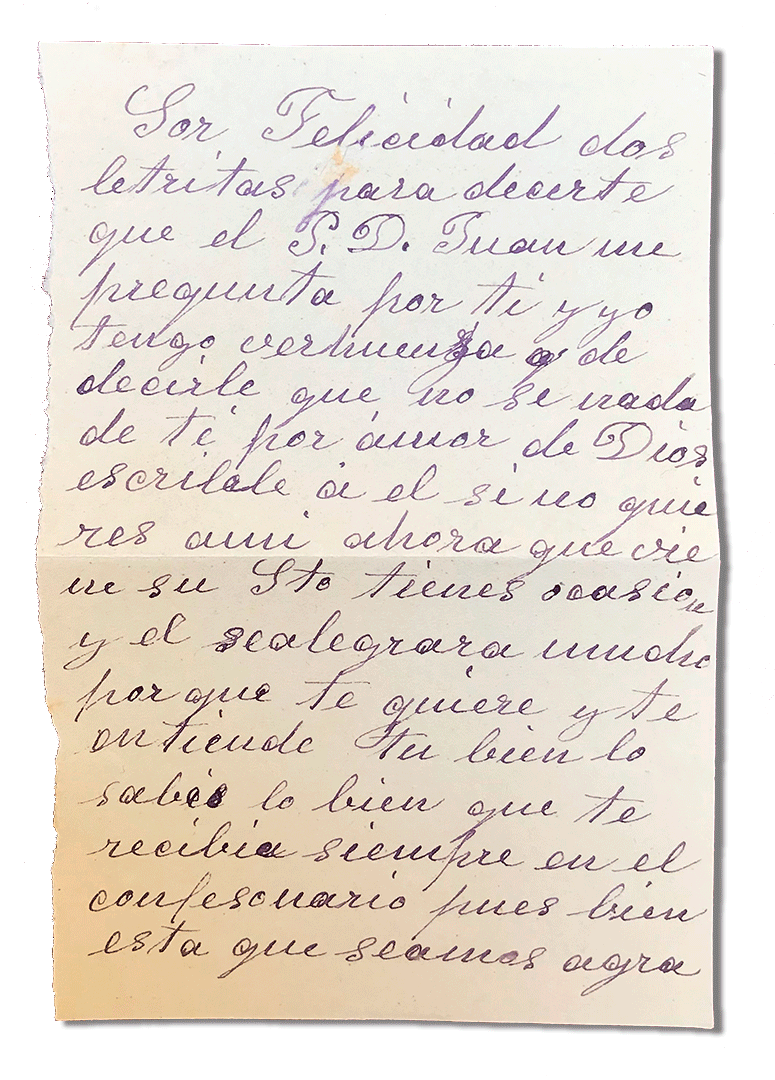 Sor Felicidad dos
letritas para decirte
que el P. D. Juan me
pregunta por ti y yo
tengo verhuenza de
decirle que no se nada
de ti por amor de Dios
escribele á el si no quie
res ami ahora que vie
ne su Sto tienes ocasion
y el sealegrara mucho
porque te quiere y te
entiende tu bien lo
sabes lo bien que te
recibia siempre en el
confesonario pues bien
esta que seamos agra